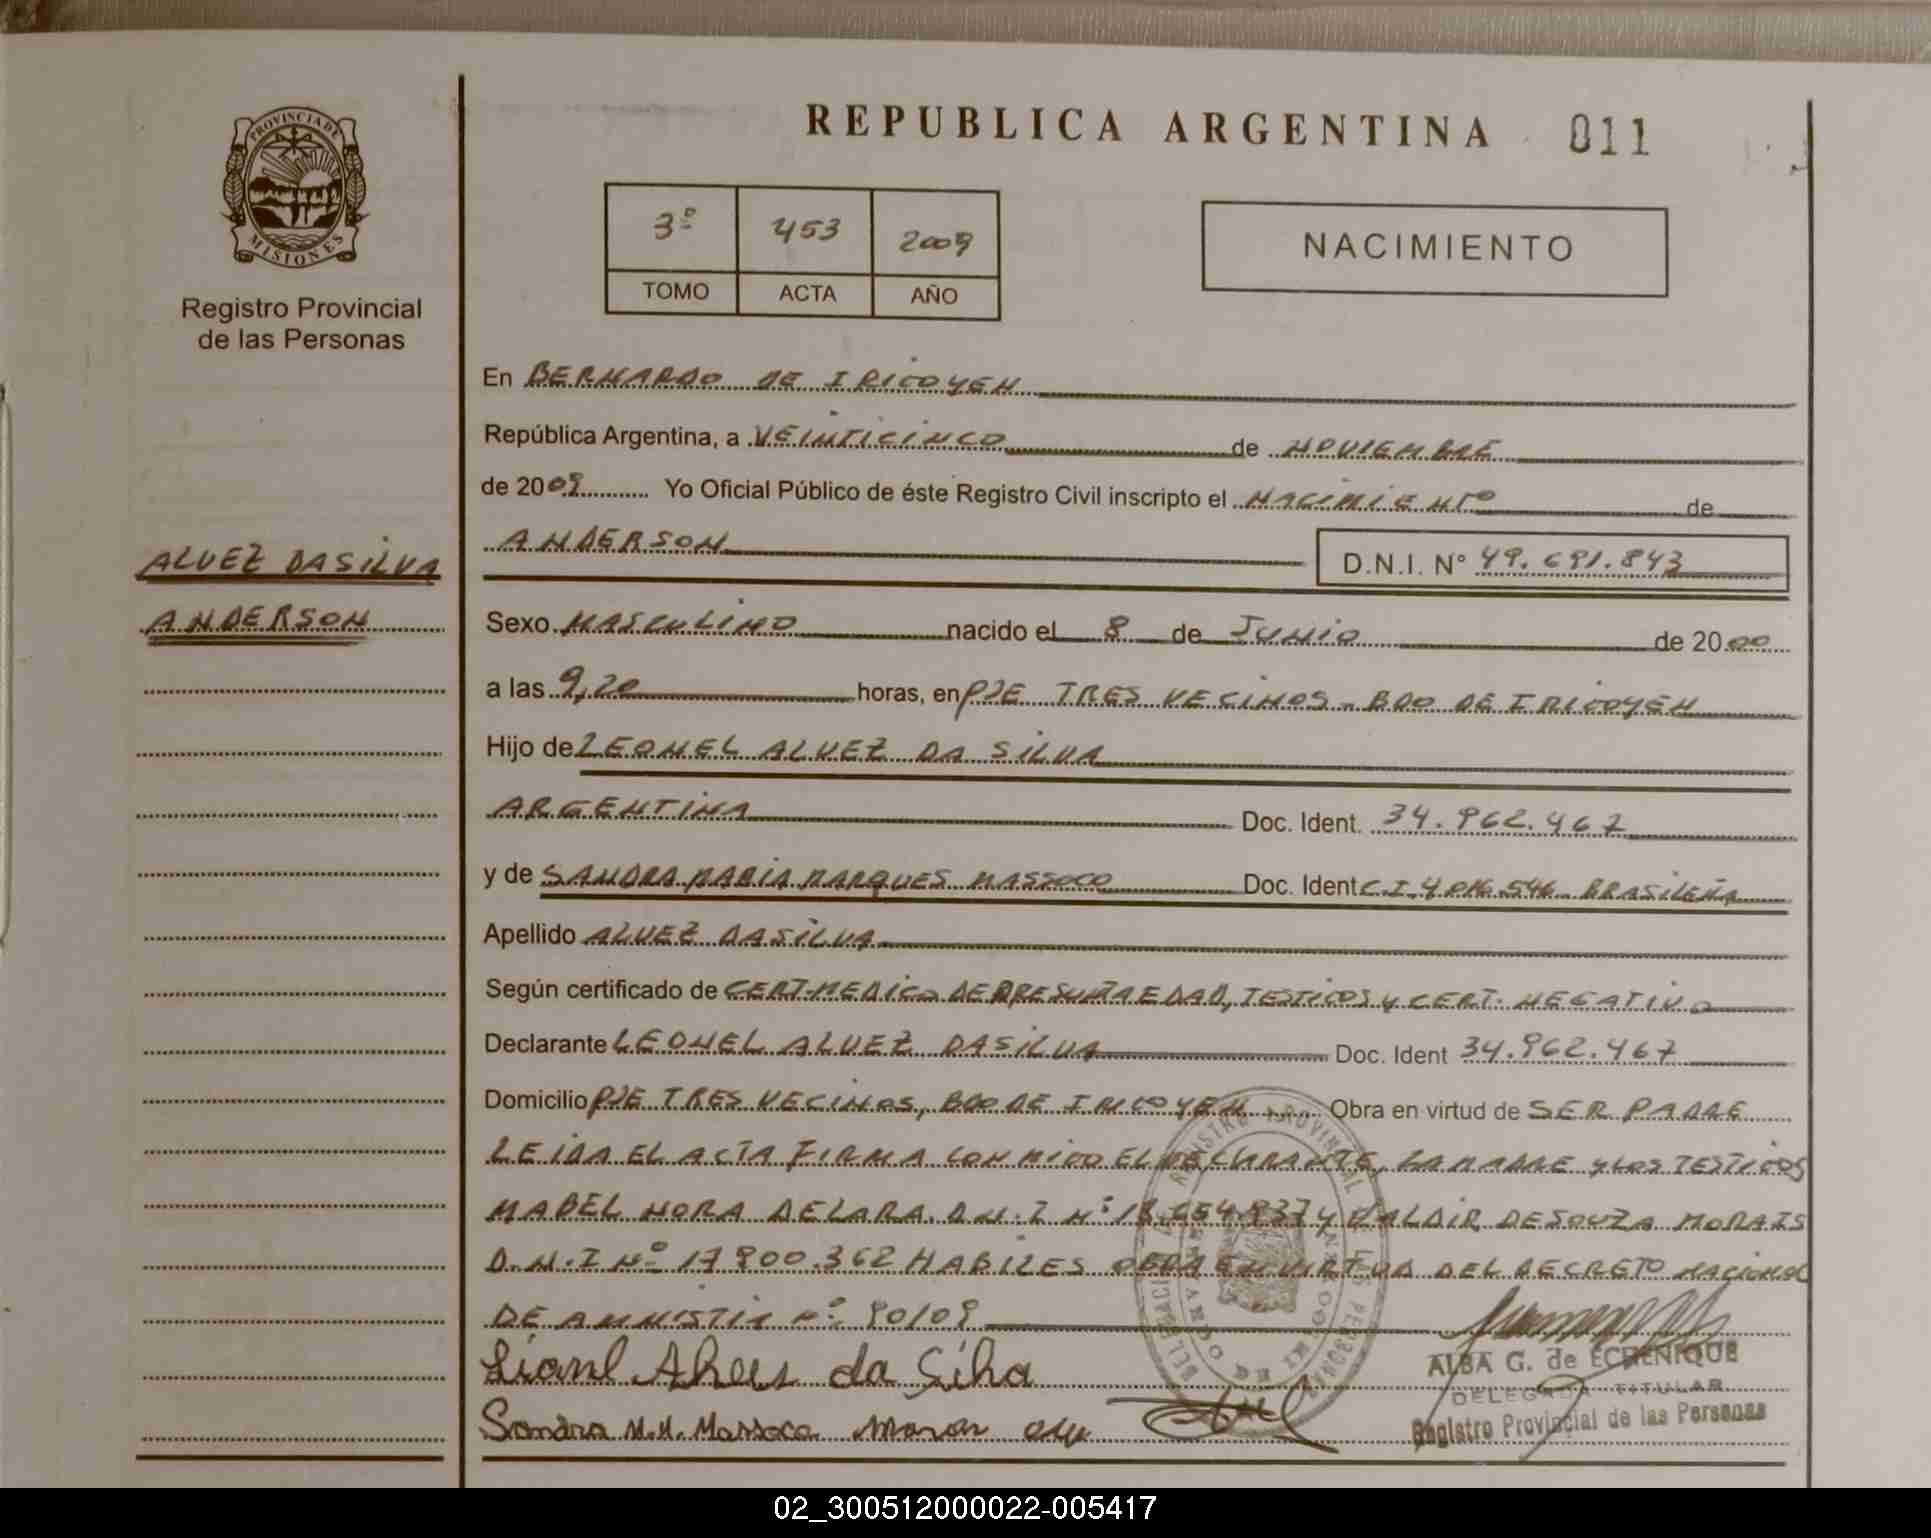 PROVINCIA DE
MISIONES
Registro Provincial
de las Personas
ALVEZ DA SILVA
ANDERSON
REPUBLICA ARGENTINA 011
3º 453 2009
TOMO ACTA AÑO
NACIMIENTO
En BERNARDO DE IRIGOYEN
República Argentina, a VEINTICINCO de NOVIEMBRE
de 2009 Yo Oficial Público de éste Registro Civil inscripto el NACIMIENTO de
ANDERSON D.N.I. Nº 49.691.843
Sexo MASCULINO nacido el 8 de JUNIO de 2000
a las 9,20 horas, en PJE TRES VECINOS - BDO DE IRIGOYEN
Hijo de LEONEL ALVEZ DA SILVA
ARGENTINA Doc. Ident. 34.962.467
y de SANDRA MARIA MARQUES MASSOCO Doc. Ident C.I. 546 BRASILEÑA
Apellido ALVEZ DA SILVA
Según certificado de CERT. MEDICO DE PRESUNTA EDAD, TESTIGOS y CERT. NEGATIVO
Declarante LEONEL ALVEZ DA SILVA Doc. Ident 34.962.467
Domicilio PJE TRES VECINOS, BDO DE IRIGOYEN Obra en virtud de SER PADRE
LEIDA EL ACTA FIRMA CONMIGO EL DECLARANTE, LA MADRE y LOS TESTIGOS
MABEL NORA DE LARA D.N.I Nº y VALDIR DE SOUZA MORAIS
D.N.I Nº 17.900.362 HABILES OBRA EN VIRTUD DEL DECRETO NACIONAL
DE AMNISTIA Nº 90/09
da Silva
Sandra M.M. Massoco
ALBA G. de ECHENIQUE
DELEGADA TITULAR
Registro Provincial de las Personas
02_300512000022-005417